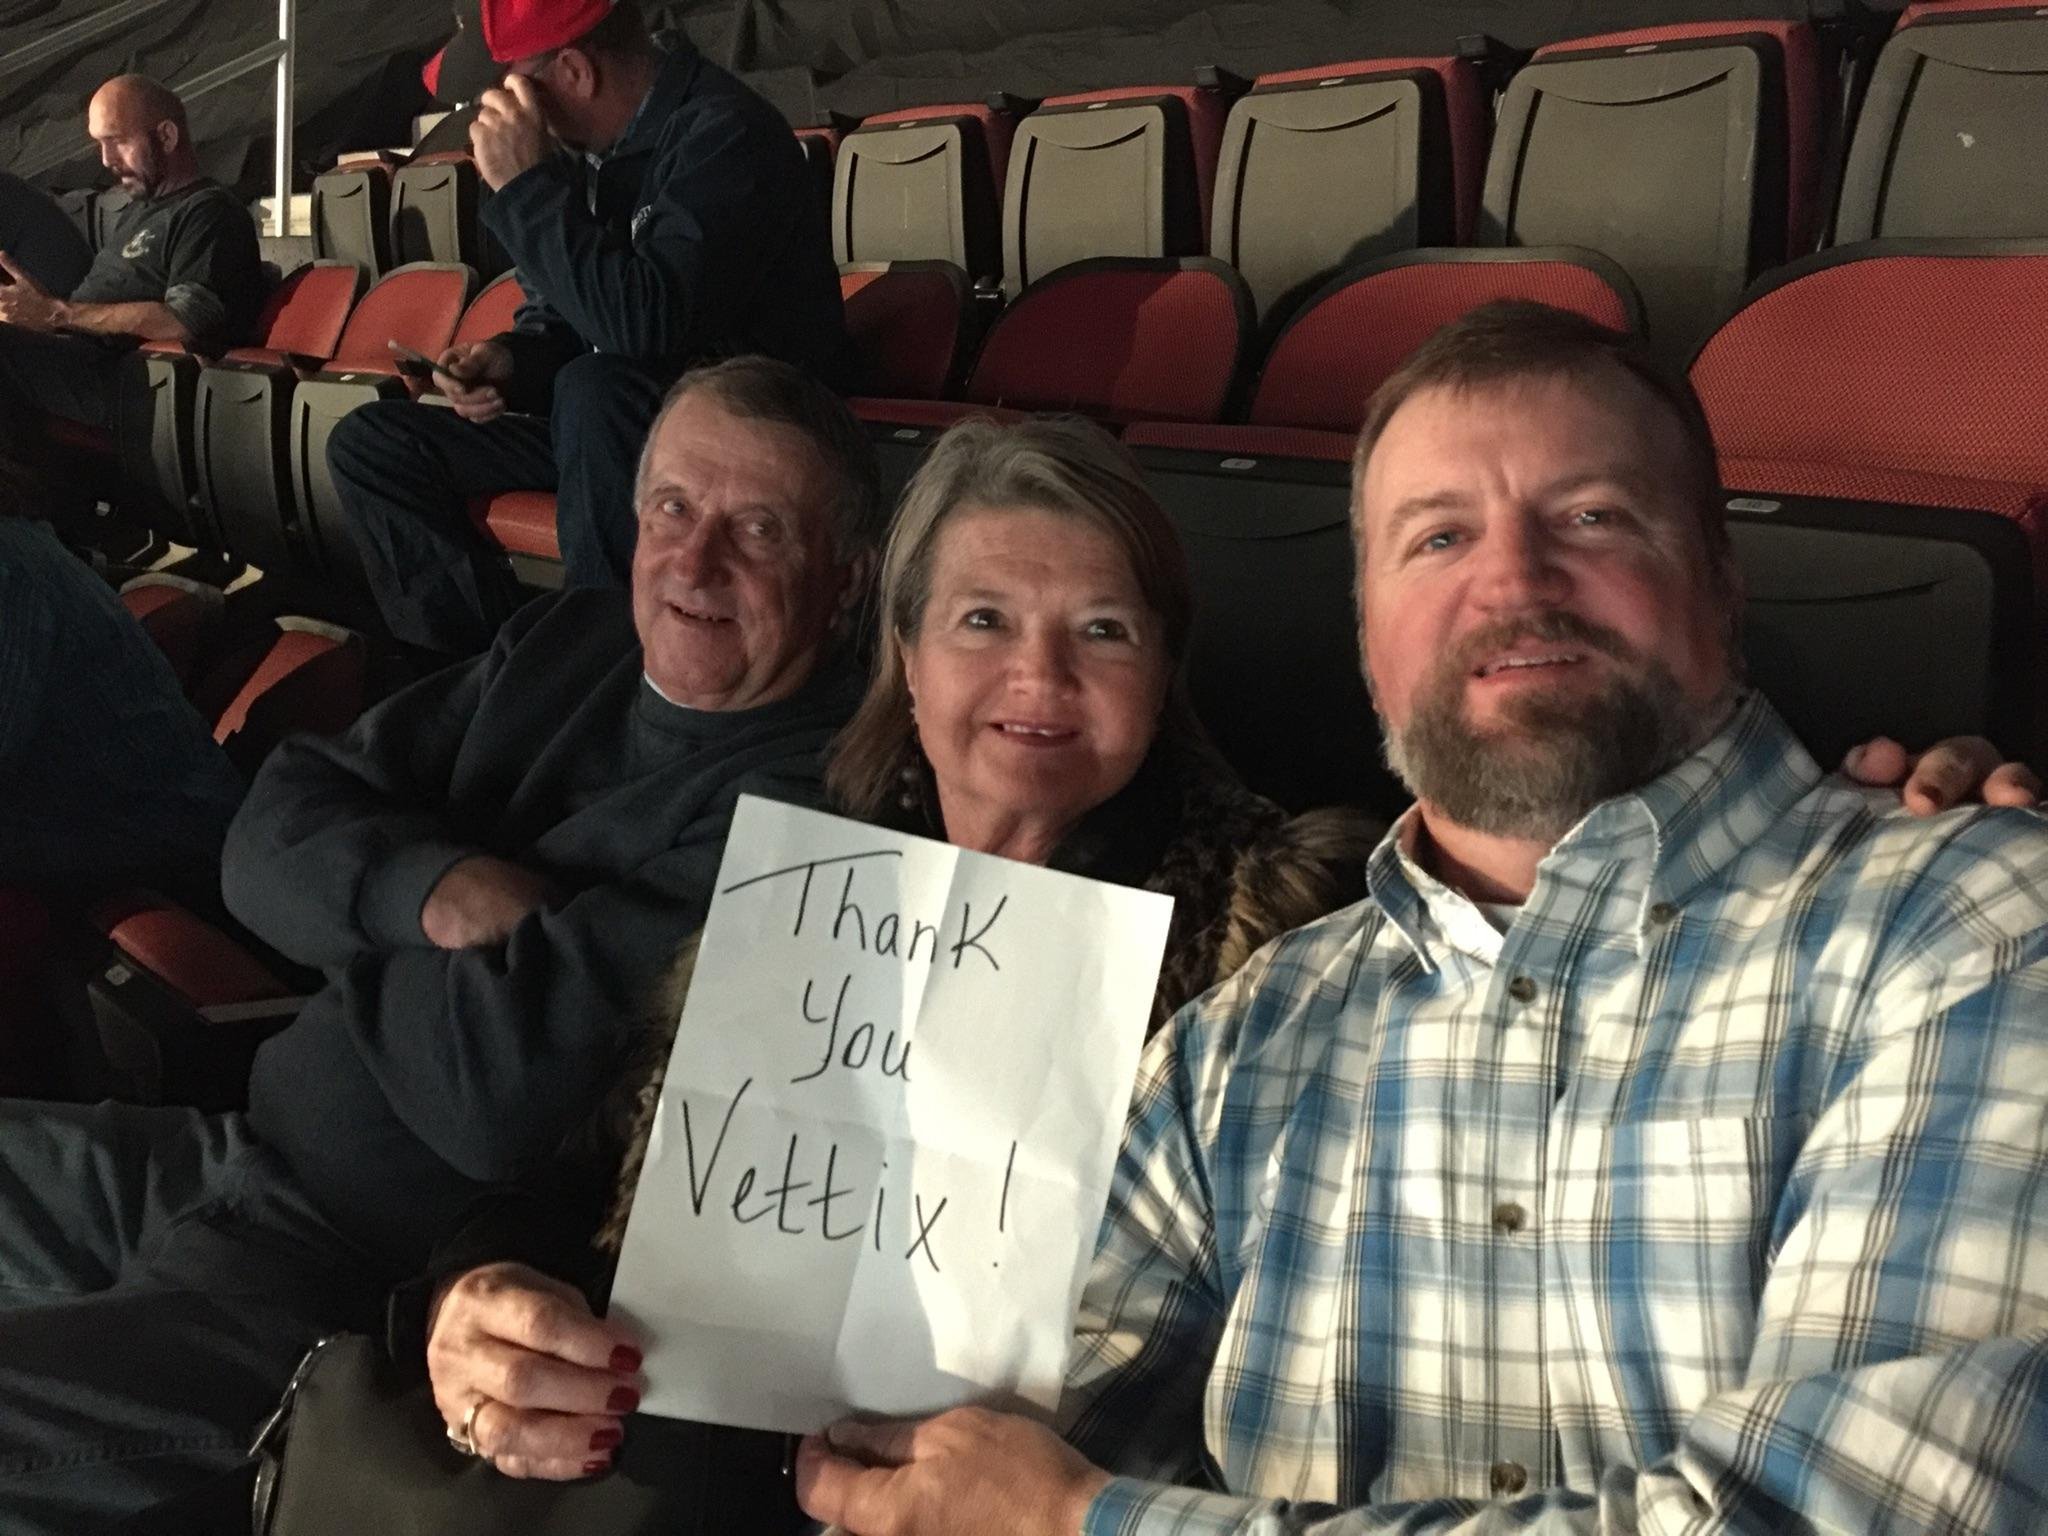 Thank
You
Vettix!